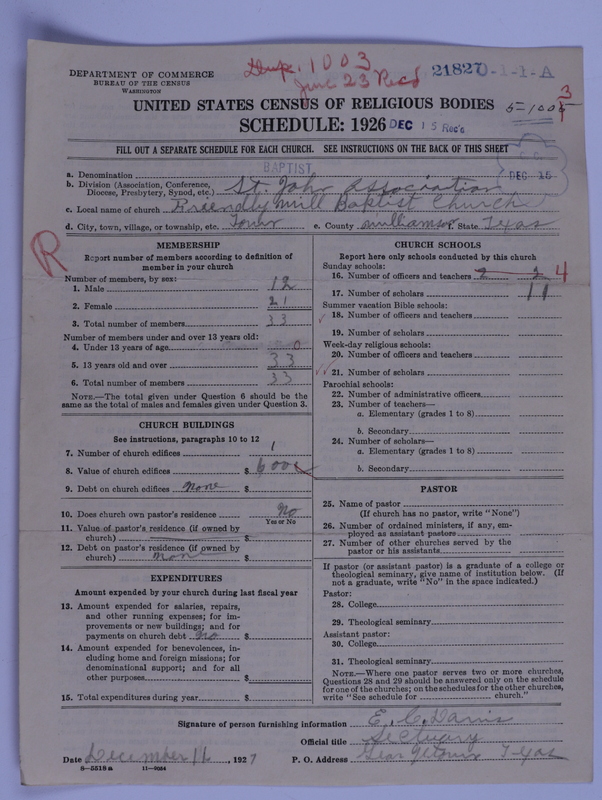 DEPARTMENT OF COMMERCE
BUREAU OF THE CENSUS
WASHINGTON
Dup. 1003
June 23 Recd
21827 0-1-1-A
UNITED STATES CENSUS OF RELIGIOUS BODIES
5-1005
3
SCHEDULE: 1926
DEC 15 Rec'd
FILL OUT A SEPARATE SCHEDULE FOR EACH CHURCH. SEE INSTRUCTIONS ON THE BACK OF THIS SHEET
a. Denomination BAPTIST
DEC 15
b. Division (Association, Conference, Diocese, Presbytery, Synod, etc.) St. John Association
c. Local name of church Friendly Mill Baptist Church
d. City, town, village, or township, etc. Town e. County Williamson f. State Texas
R
MEMBERSHIP
Report number of members according to definition of
member in your church
Number of members, by sex:
1. Male 12
2. Female 21
3. Total number of members 33
Number of members under and over 13 years old:
4. Under 13 years of age 0
5. 13 years old and over 33
6. Total number of members 33
NOTE.—The total given under Question 6 should be
same as the total of males and females given under Question 3.
CHURCH BUILDINGS
See instructions, paragraphs 10 to 12
7. Number of church edifices 1
8. Value of church edifices $ 600
9. Debt on church edifices none $
10. Does church own pastor's residence No
Yes or No
11. Value of pastor's residence (if owned by
church) $
12. Debt on pastor's residence (if owned by
church) none $
EXPENDITURES
Amount expended by your church during last fiscal year
13. Amount expended for salaries, repairs,
and other running expenses; for im-
provements or new buildings; and for
payments on church debt no $
14. Amount expended for benevolences, in-
cluding home and foreign missions; for
denominational support; and for all
other purposes $
15. Total expenditures during year $
CHURCH SCHOOLS
Report here only schools conducted by this church
Sunday schools:
16. Number of officers and teachers 2 2 4
17. Number of scholars 11
Summer vacation Bible schools:
18. Number of officers and teachers
19. Number of scholars
Week-day religious schools:
20. Number of officers and teachers
21. Number of scholars
Parochial schools:
22. Number of administrative officers
23. Number of teachers—
a. Elementary (grades 1 to 8)
b. Secondary
24. Number of scholars—
a. Elementary (grades 1 to 8)
b. Secondary
PASTOR
25. Name of pastor
(If church has no pastor, write "None")
26. Number of ordained ministers, if any, em-
ployed as assistant pastors
27. Number of other churches served by the
pastor or his assistants
If pastor (or assistant pastor) is a graduate of a college or
theological seminary, give name of institution below. (If
not a graduate, write "No" in the space indicated.)
Pastor:
28. College
29. Theological seminary
Assistant pastor:
30. College
31. Theological seminary
NOTE.—Where one pastor serves two or more churches,
Questions 28 and 29 should be answered only on the schedule
for one of the churches; on the schedules for the other churches,
write "See schedule for church."
Signature of person furnishing information E. C. Davis
Official title
Date December 11, 1927 P. O. Address Texas
8-5518a 11-9034